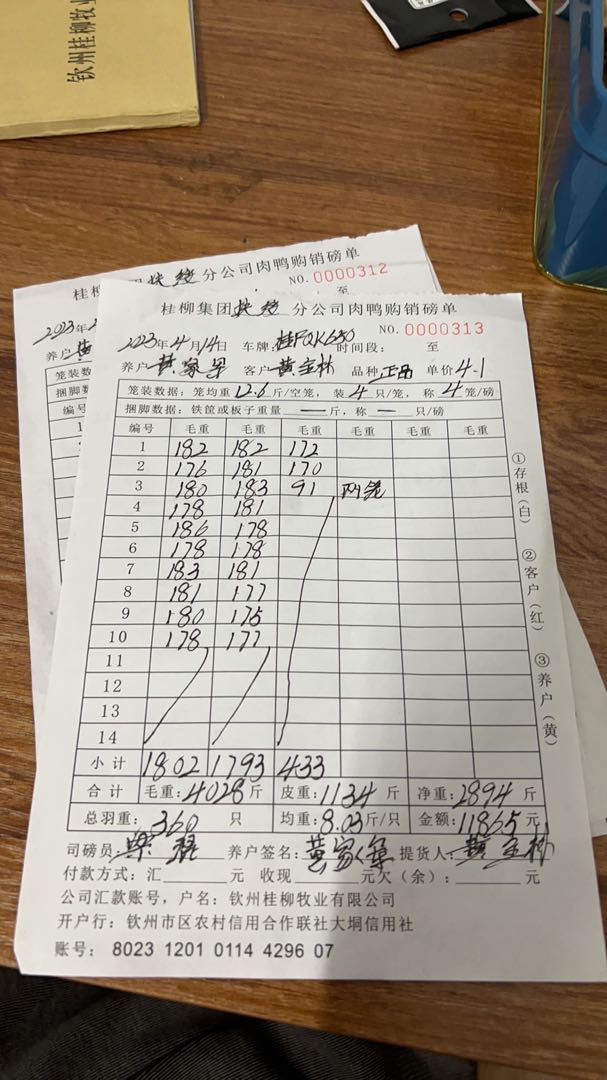 钦州桂柳牧业
桂柳 集团扶绥分公司肉鸭购销磅单
NO.0000312
2023年
至
养户
笼装数
捆脚数
编号
1
桂柳集团扶绥 分公司肉鸭购销磅单
NO. 0000313
2023年4月14日 车牌:桂FQK650 时间段: 至
养户 客户黄宝林 品种正品 单价4-1
笼装数据:笼均重12.6斤/空笼, 装4只/笼, 称4笼/磅
捆脚数据:铁筐或板子重量 — 斤,称 — 只/磅
编号 毛重 毛重 毛重 毛重 毛重 毛重
1 182 182 172
2 176 181 170
3 180 183 91 两笼
4 178 181
5 186 178
6 178 178
7 183 181
8 181 177
9 180 175
10 178 177
11
12
13
14
小计 1802 1793 433
合计 毛重:4028斤 皮重:1134斤 净重:2894斤
总羽重: 360 只 均重:8.03斤/只 金额:11865元
司磅员: 养户签名: 提货人:黄宝林
付款方式:汇 元 收现 元欠(余): 元
公司汇款账号,户名:钦州桂柳牧业有限公司
开户行:钦州市区农村信用合作联社大垌信用社
账号: 8023 1201 0114 4296 07
①存根(白)
②客户(红)
③养户(黄)